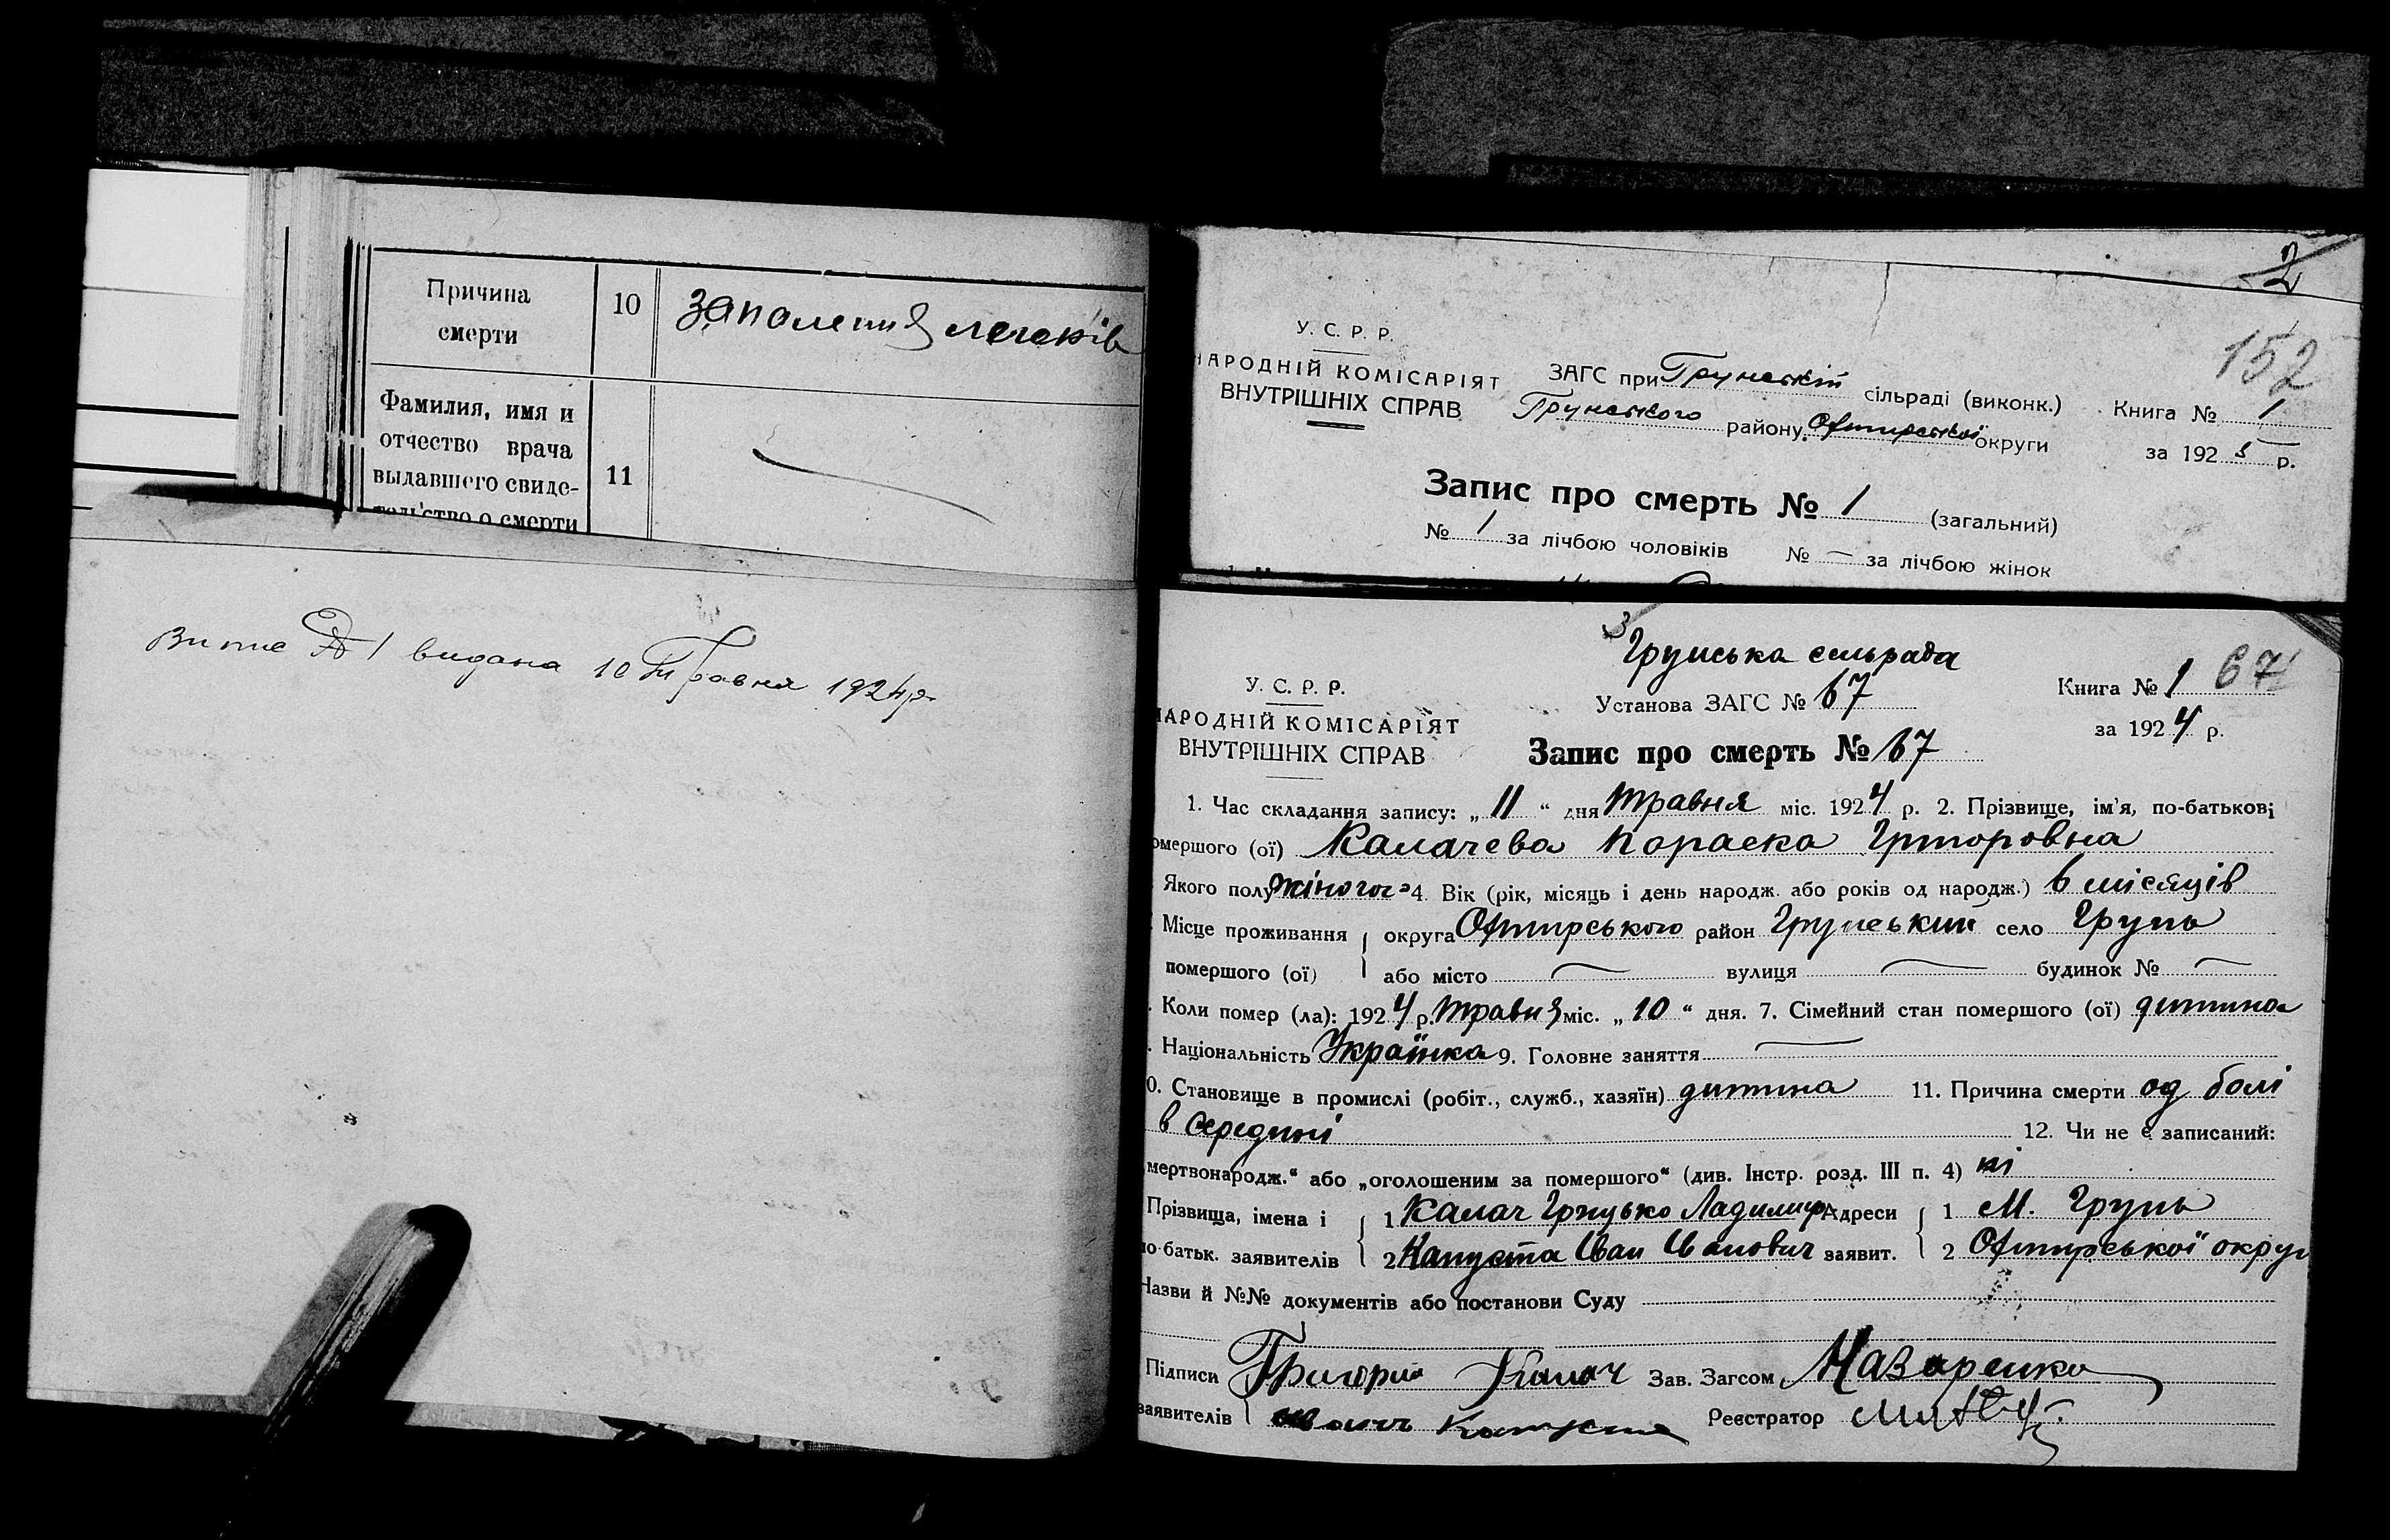 Причина
смерти
10
запаления легенів
Фамилия, имя и
отчество врача
выдавшего свиде-
тельство о смерти
11
Випис № 1 видана 10 Травня 1924 р.
2
152
У. С. Р. Р.
НАРОДНІЙ КОМІСАРІЯТ
ВНУТРІШНІХ СПРАВ
ЗАГС при Грунській сільраді (виконк.)
Грунського району Охтирської округи
Книга № 1
за 1925 р.
Запис про смерть № 1 (загальний)
№ 1 за лічбою чоловіків № — за лічбою жінок
3
Грунська сельрада
У. С. Р. Р.
НАРОДНІЙ КОМІСАРІЯТ
ВНУТРІШНІХ СПРАВ
Установа ЗАГС № 67
Книга № 1 67
за 1924 р.
Запис про смерть № 67
1. Час складання запису: „11“ дня травня міс. 1924 р. 2. Прізвище, ім'я, по-батькові
омершого (ої) Калачева Параска Григоровна
Якого полу жіного 4. Вік (рік, місяць і день народж. або років од народж.) 6 місяців
Місце проживання округа Охтирського район Грунський село Грунь
помершого (ої) або місто — вулиця — будинок № —
Коли помер (ла): 1924 р. травня міс. „10“ дня. 7. Сімейний стан помершого (ої) дитина
. Національність Українка 9. Головне заняття —
0. Становище в промислі (робіт., служб., хазяїн) дитина 11. Причина смерти од болі
в середині 12. Чи не є записаний:
мертвонародж.“ або „оголошеним за помершого“ (див. Інстр. розд. III п. 4) ні
Прізвища, імена і 1 Калач Грицько Ладимир Адреси 1 М. Грунь
по-батьк. заявителів 2 Капуста Іван Іванович заявит. 2 Охтирської округи
Назви й №№ документів або постанови Суду
Підписи Григорий Калач Зав. Загсом Назаренко
заявителів Иванъ Капуста Реєстратор